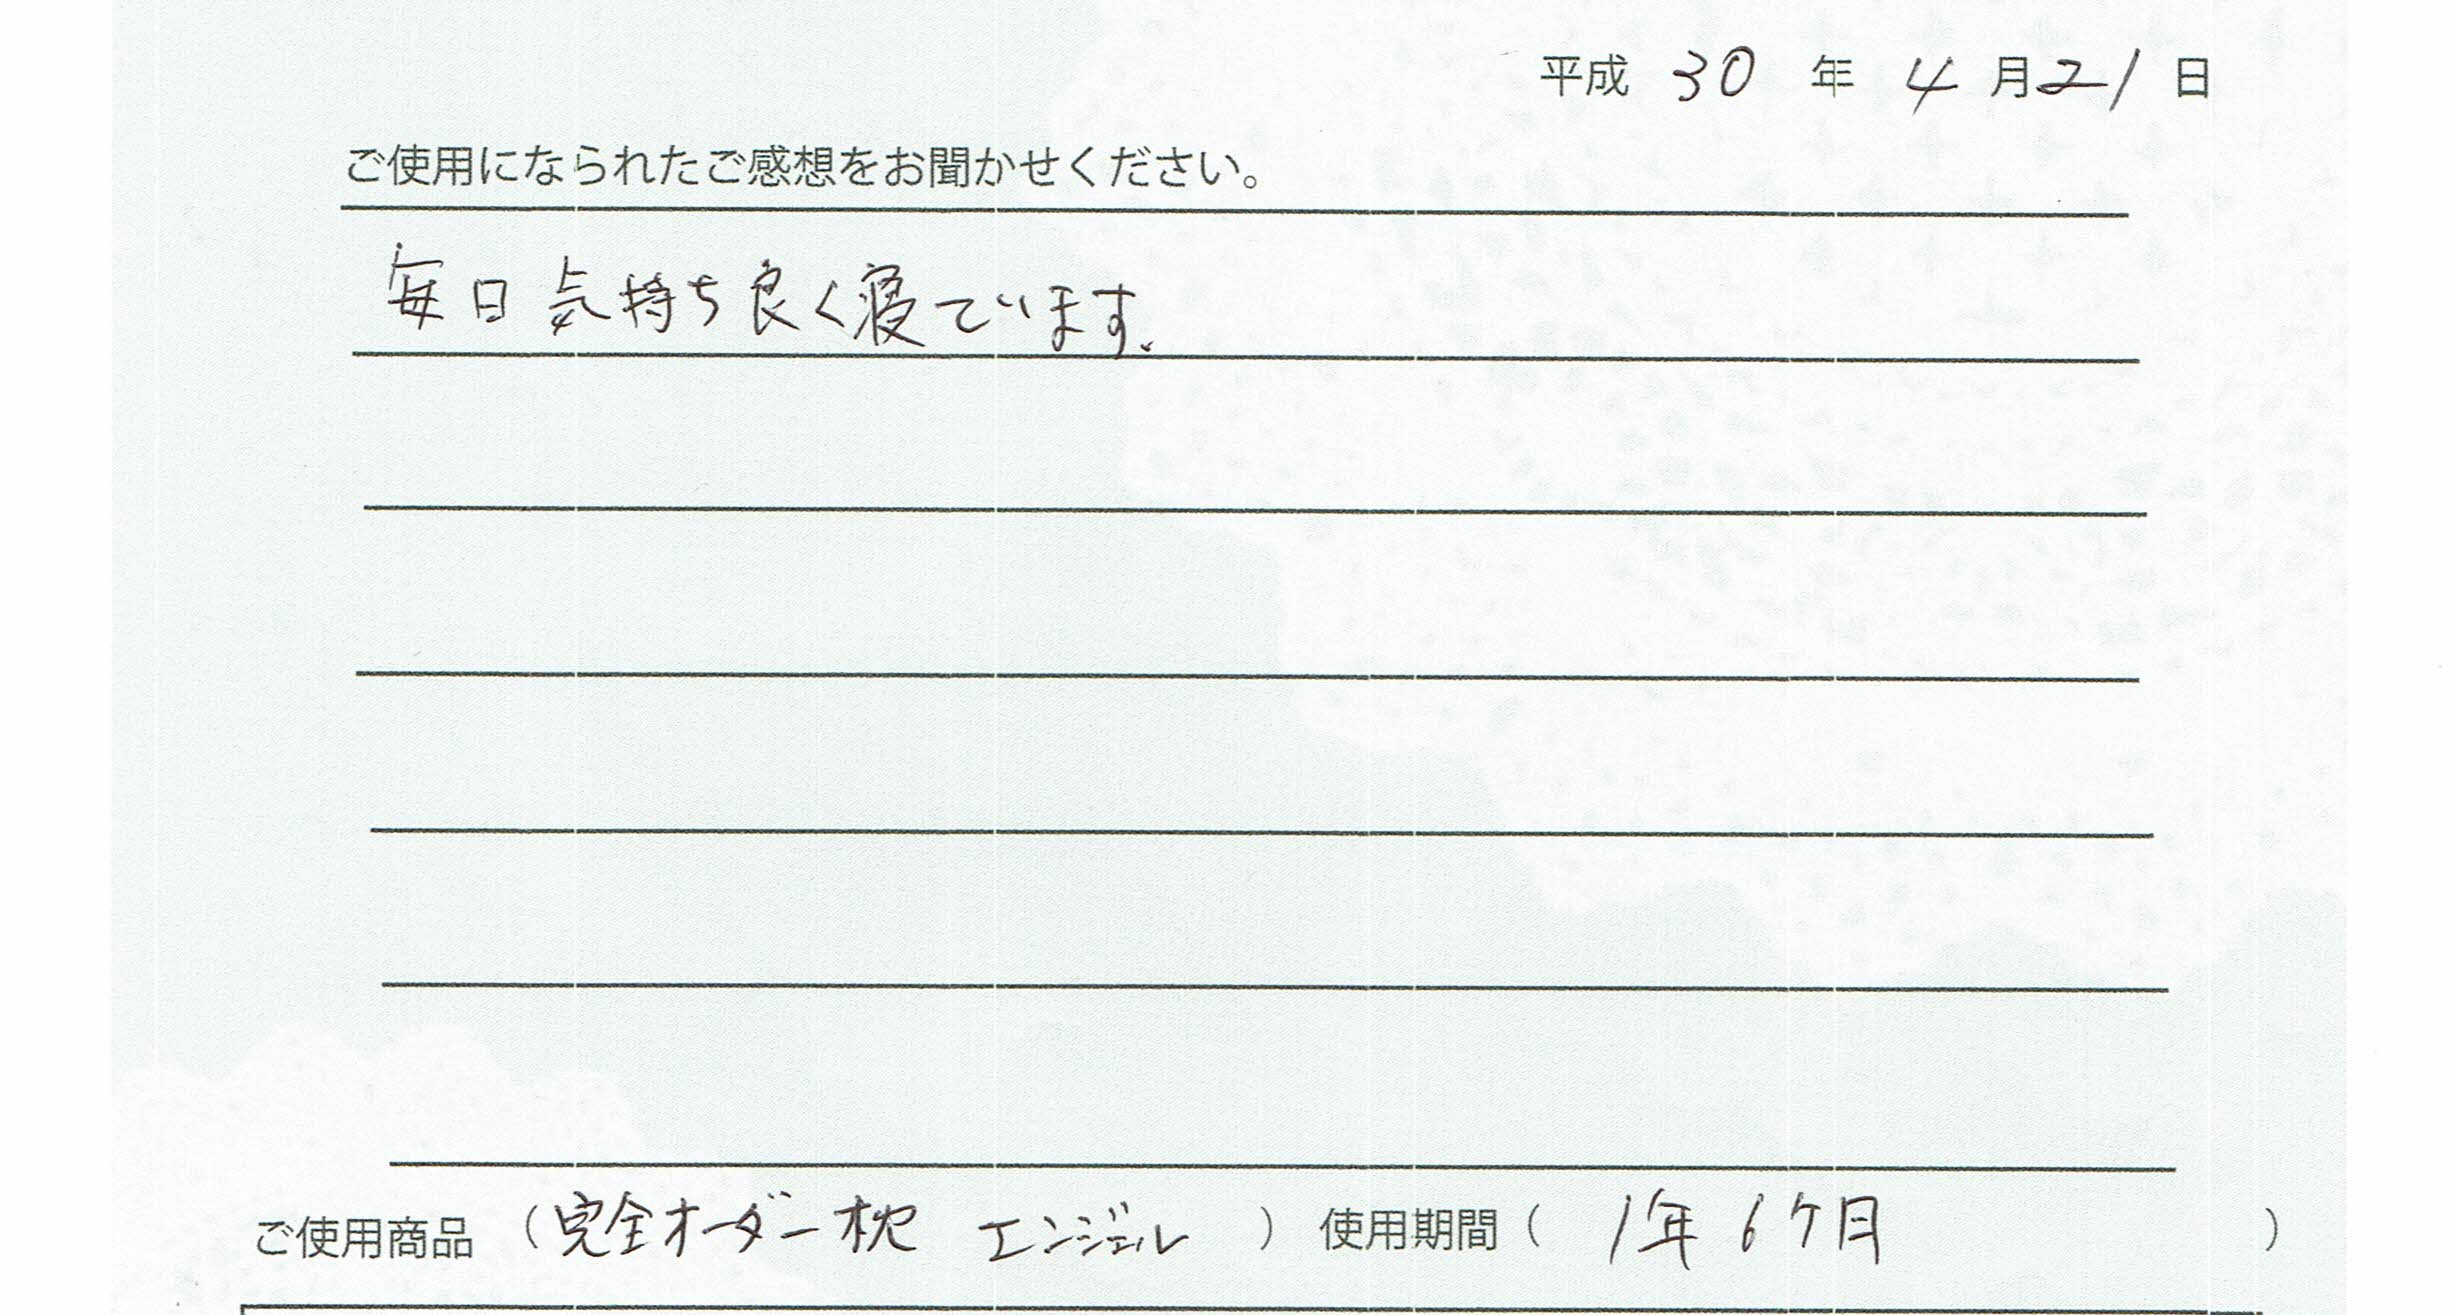 平成 30 年 4 月 21 日
ご使用になられたご感想をお聞かせください。
毎日気持ち良く寝ています。
ご使用商品 (完全オーダー枕 エンジェル) 使用期間 (1年6ケ月)